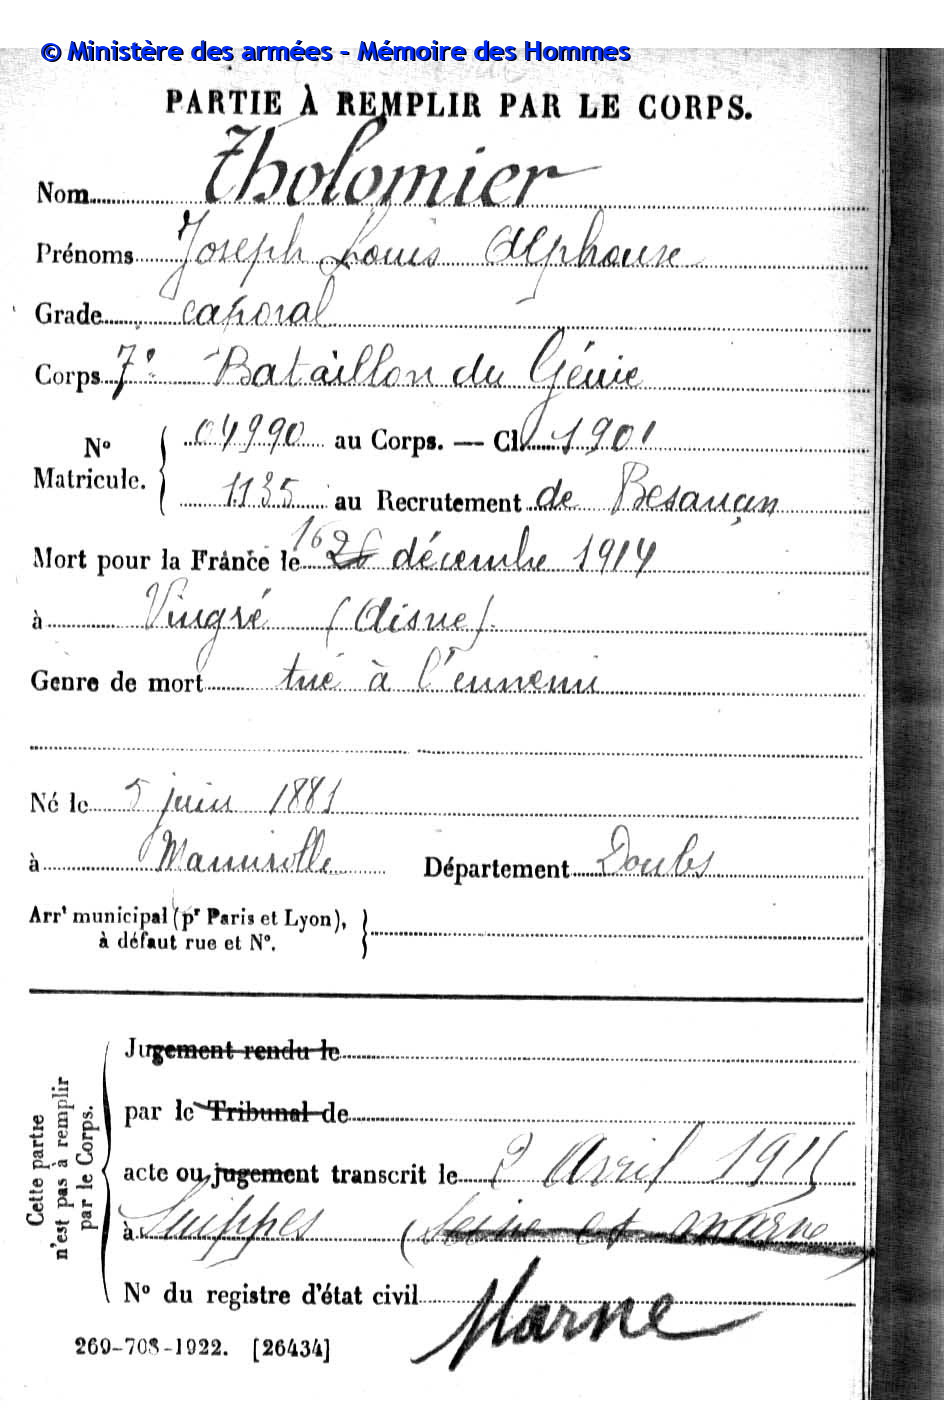 © Ministère des armées - Mémoire des Hommes
PARTIE À REMPLIR PAR LE CORPS.
Nom Tholomier
Prénoms Joseph Louis Alphonse
Grade caporal
Corps 7e Bataillon du Génie
N° Matricule. { 04990 au Corps. — Cl. 1901
1135 au Recrutement de Besançon
Mort pour la France le 16 26 décembre 1914
à Vingré (Aisne).
Genre de mort tué à l'ennemi
Né le 5 juin 1881
à Mamirolle Département Doubs
Arrt municipal (pr Paris et Lyon),
à défaut rue et N°.
Cette partie
n'est pas à remplir
par le Corps.
Jugement rendu le
par le Tribunal de
acte ou jugement transcrit le 2 Avril 1915
à Suippes (Seine et Marne
N° du registre d'état civil
Marne
269-708-1922. [26434]